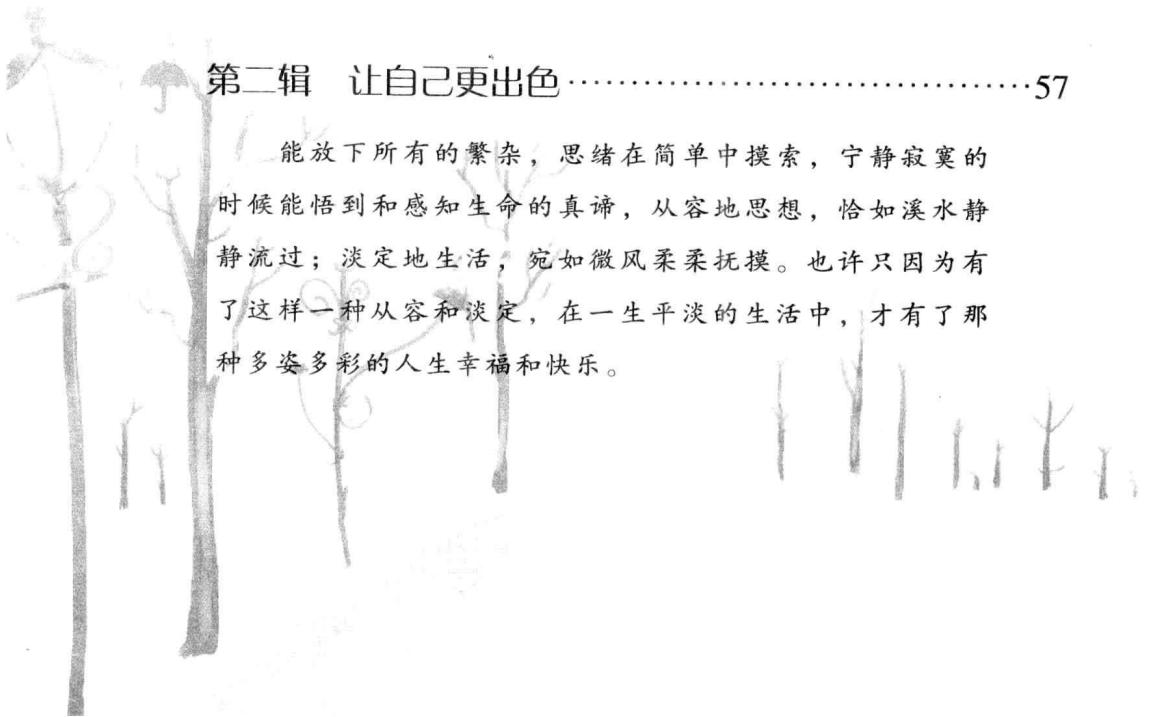 第二辑　让自己更出色·····································57
能放下所有的繁杂，思绪在简单中摸索，宁静寂寞的
时候能悟到和感知生命的真谛，从容地思想，恰如溪水静
静流过；淡定地生活，宛如微风柔柔抚摸。也许只因为有
了这样一种从容和淡定，在一生平淡的生活中，才有了那
种多姿多彩的人生幸福和快乐。